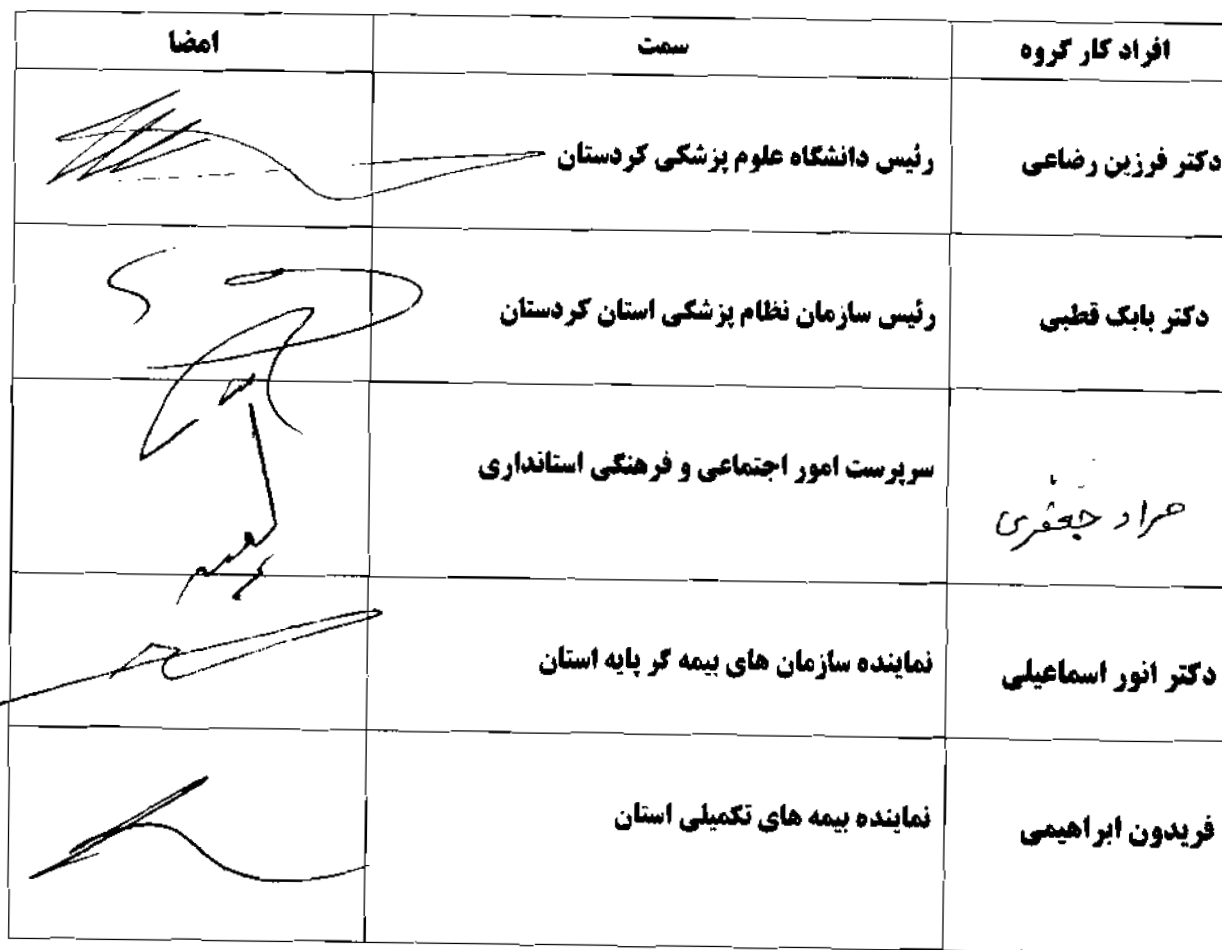 افراد کار گروه سمت امضا
دکتر فرزین رضاعی رئیس دانشگاه علوم پزشکی کردستان
دکتر بابک قطبی رئیس سازمان نظام پزشکی استان کردستان
مراد جعفری سرپرست امور اجتماعی و فرهنگی استانداری
دکتر انور اسماعیلی نماینده سازمان های بیمه گر پایه استان
فریدون ابراهیمی نماینده بیمه های تکمیلی استان